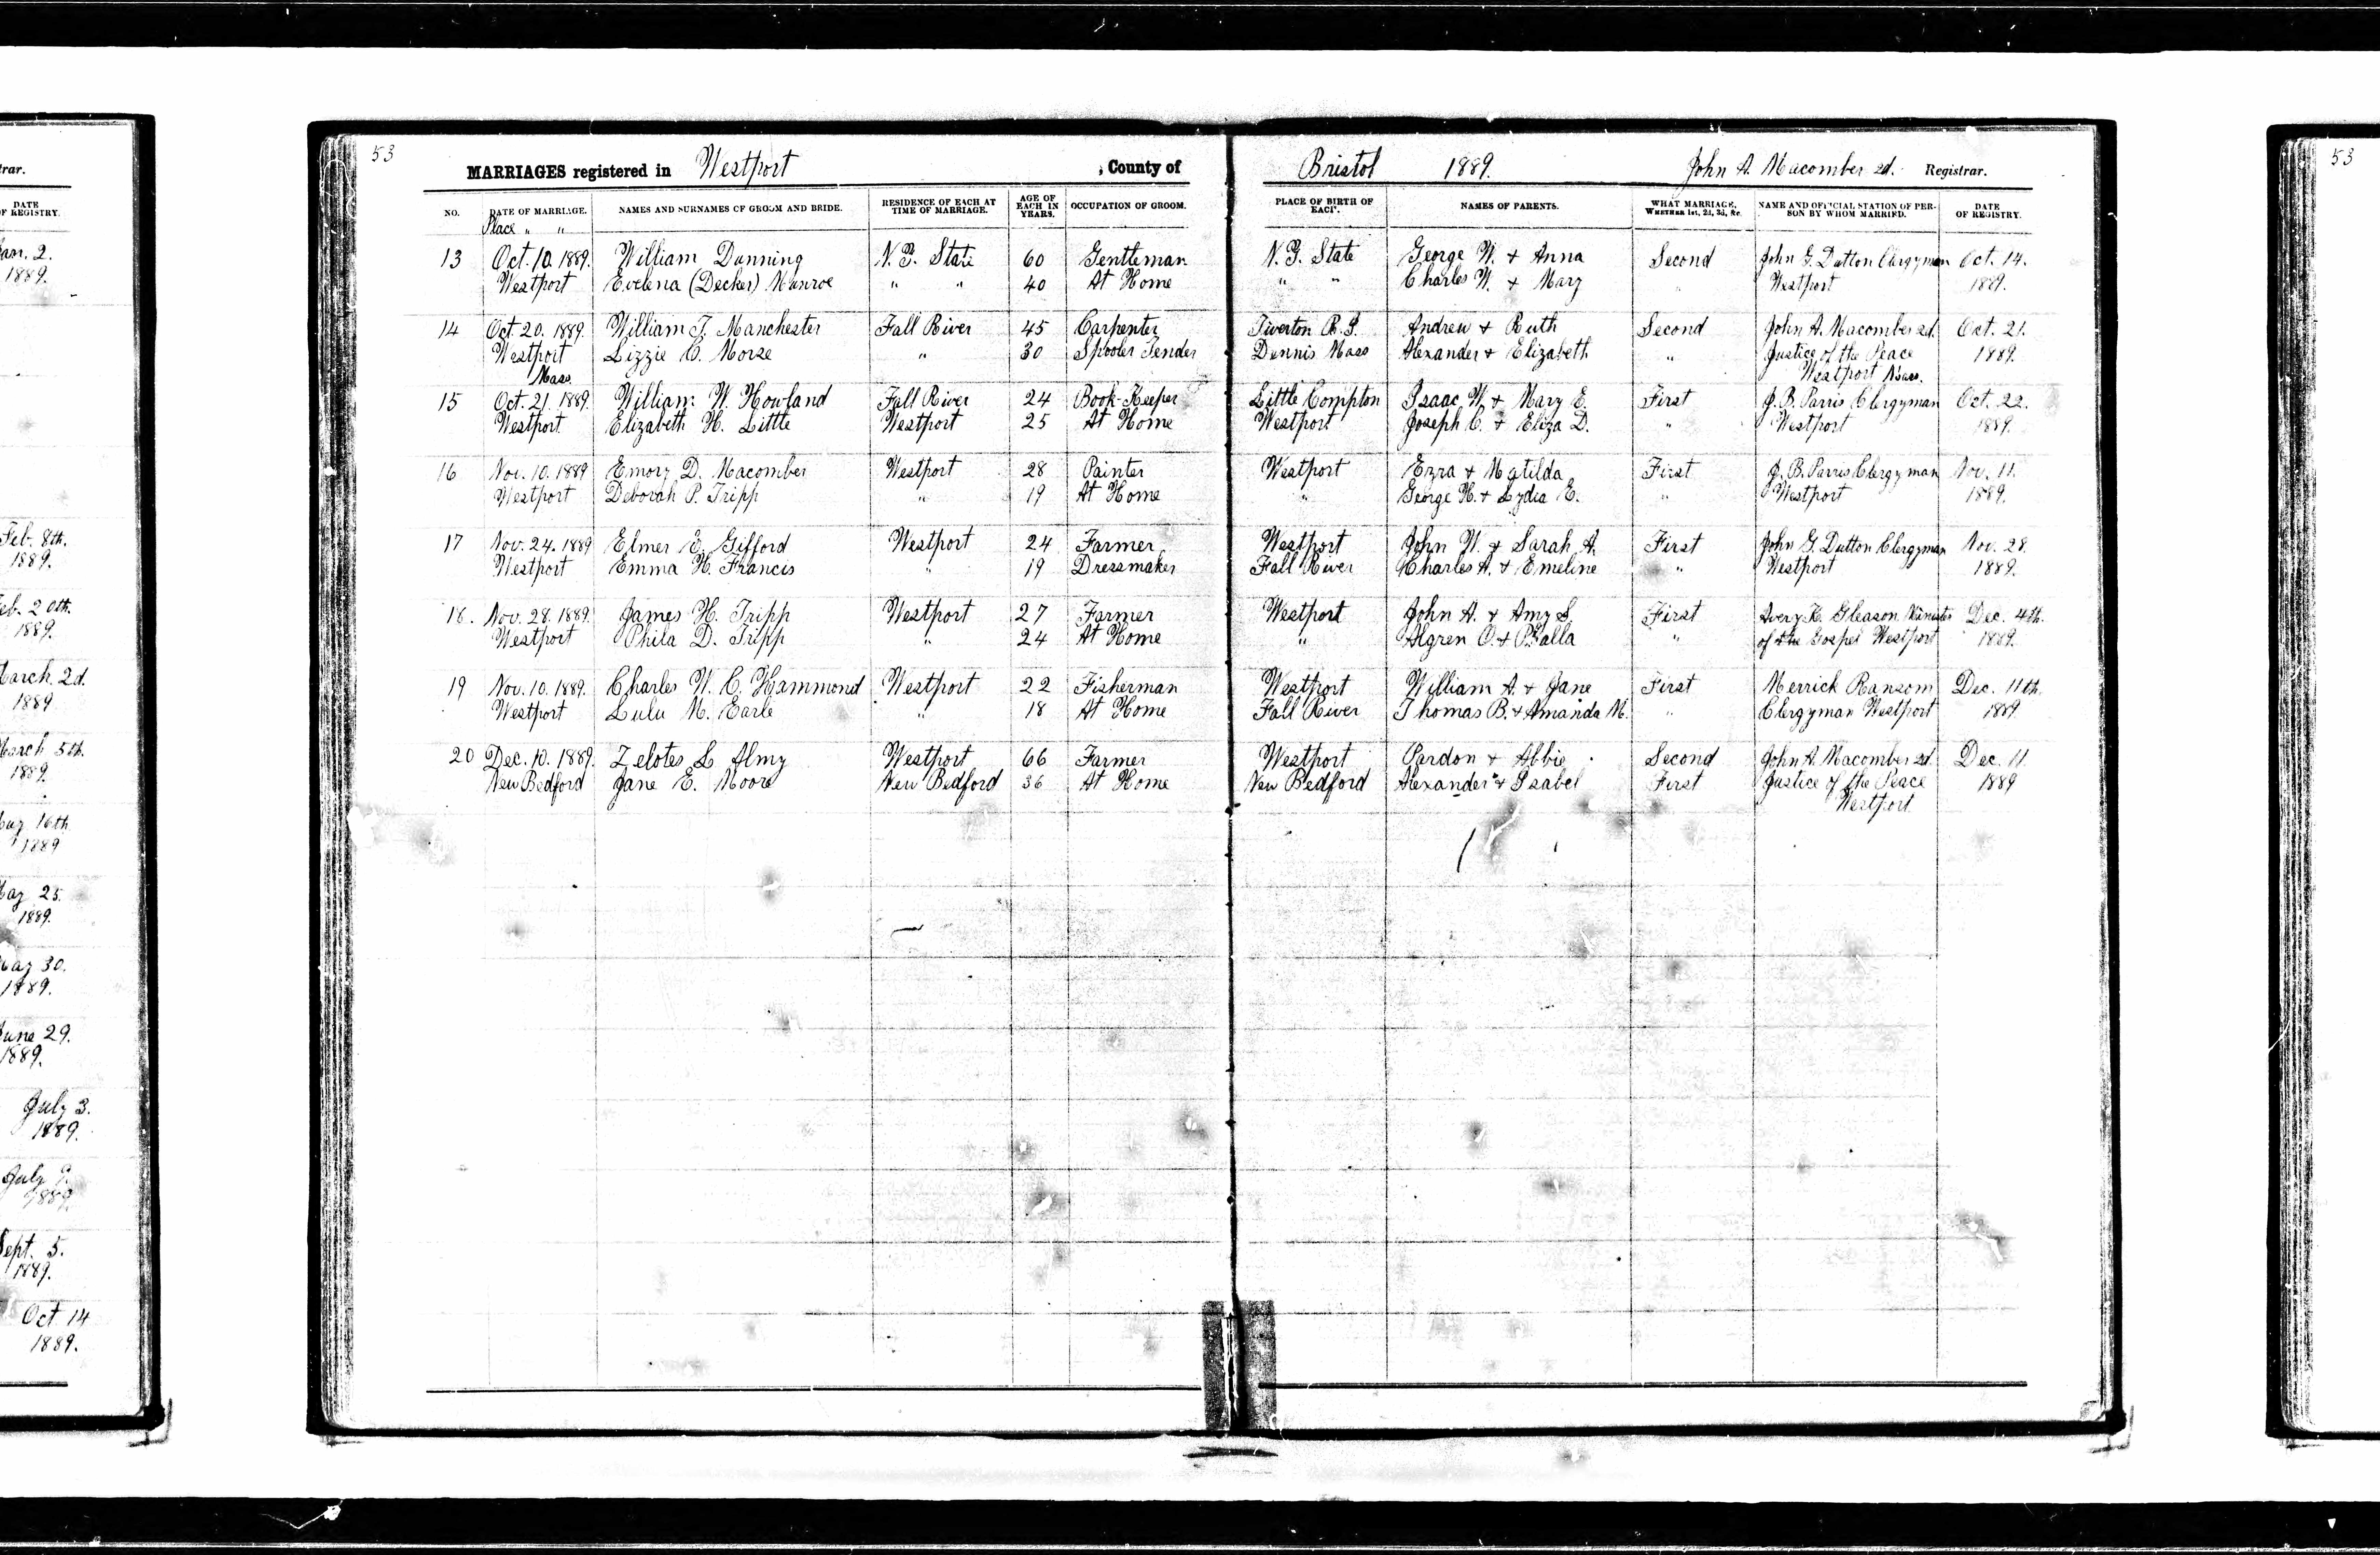 trar.
DATE
OF REGISTRY.
Jan. 2.
1889.
Feb. 8th.
1889.
Feb. 20th.
1889.
March. 2d.
1889
March 5th.
1889.
May 16th
1889
May 25.
1889.
May 30.
1889.
June 29.
1889.
July 3.
1889.
July 9.
1889.
Sept. 5.
1889.
Oct 14
1889.
53
MARRIAGES registered in Westport , County of Bristol 1889. John A. Macomber 2d. Registrar.
NO. DATE OF MARRIAGE. NAMES AND SURNAMES OF GROOM AND BRIDE. RESIDENCE OF EACH AT TIME OF MARRIAGE. AGE OF EACH IN YEARS. OCCUPATION OF GROOM. PLACE OF BIRTH OF EACH. NAMES OF PARENTS. WHAT MARRIAGE, WHETHER 1st, 2d, 3d, &c. NAME AND OFFICIAL STATION OF PERSON BY WHOM MARRIED. DATE OF REGISTRY.
Place " "
13 Oct. 10. 1889. William Dunning N. Y. State 60 Gentleman N. Y. State George W. + Anna Second John G. Dutton Clergyman Oct. 14.
Westport Evelena (Decker) Munroe " " 40 At Home " " Charles W. + Mary " Westport 1889.
14 Oct. 20. 1889. William T. Manchester Fall River 45 Carpenter Tiverton R. I. Andrew + Ruth Second John A. Macomber 2d. Oct. 21.
Westport Lizzie C. Morse " 30 Spooler Tender Dennis Mass Alexander + Elizabeth " Justice of the Peace 1889.
Mass. Westport Mass.
15 Oct. 21. 1889. William W. Howland Fall River 24 Book-Keeper Little Compton Isaac W. + Mary E. First J. B. Parris Clergyman Oct. 22.
Westport Elizabeth H. Little Westport 25 At Home Westport Joseph C. + Eliza D. " Westport 1889.
16 Nov. 10. 1889 Emory D. Macomber Westport 28 Painter Westport Ezra + Matilda First J. B. Parris Clergyman Nov. 11.
Westport Deborah P. Tripp " 19 At Home " George H. + Lydia E. " Westport 1889.
17 Nov. 24. 1889 Elmer E. Gifford Westport 24 Farmer Westport John W. + Sarah A. First John G. Dutton Clergyman Nov. 28.
Westport Emma H. Francis " 19 Dressmaker Fall River Charles A. + Emeline " Westport 1889.
18. Nov. 28. 1889. James H. Tripp Westport 27 Farmer Westport John A. + Amy S. First Avery K. Gleason Minister Dec. 4th.
Westport Phila D. Tripp " 24 At Home " Algren O. + Phalla " of the Gospel Westport 1889.
19 Nov. 10. 1889. Charles W. C. Hammond Westport 22 Fisherman Westport William A. + Jane First Merrick Ransom Dec. 11th.
Westport Lulu M. Earle " 18 At Home Fall River Thomas B. + Amanda M. " Clergyman Westport 1889.
20 Dec. 10. 1889. Zelotes L Almy Westport 66 Farmer Westport Pardon + Abbie Second John A. Macomber 2d. Dec. 11
New Bedford Jane E. Moore New Bedford 36 At Home New Bedford Alexander + Isabel First Justice of the Peace 1889
Westport
53